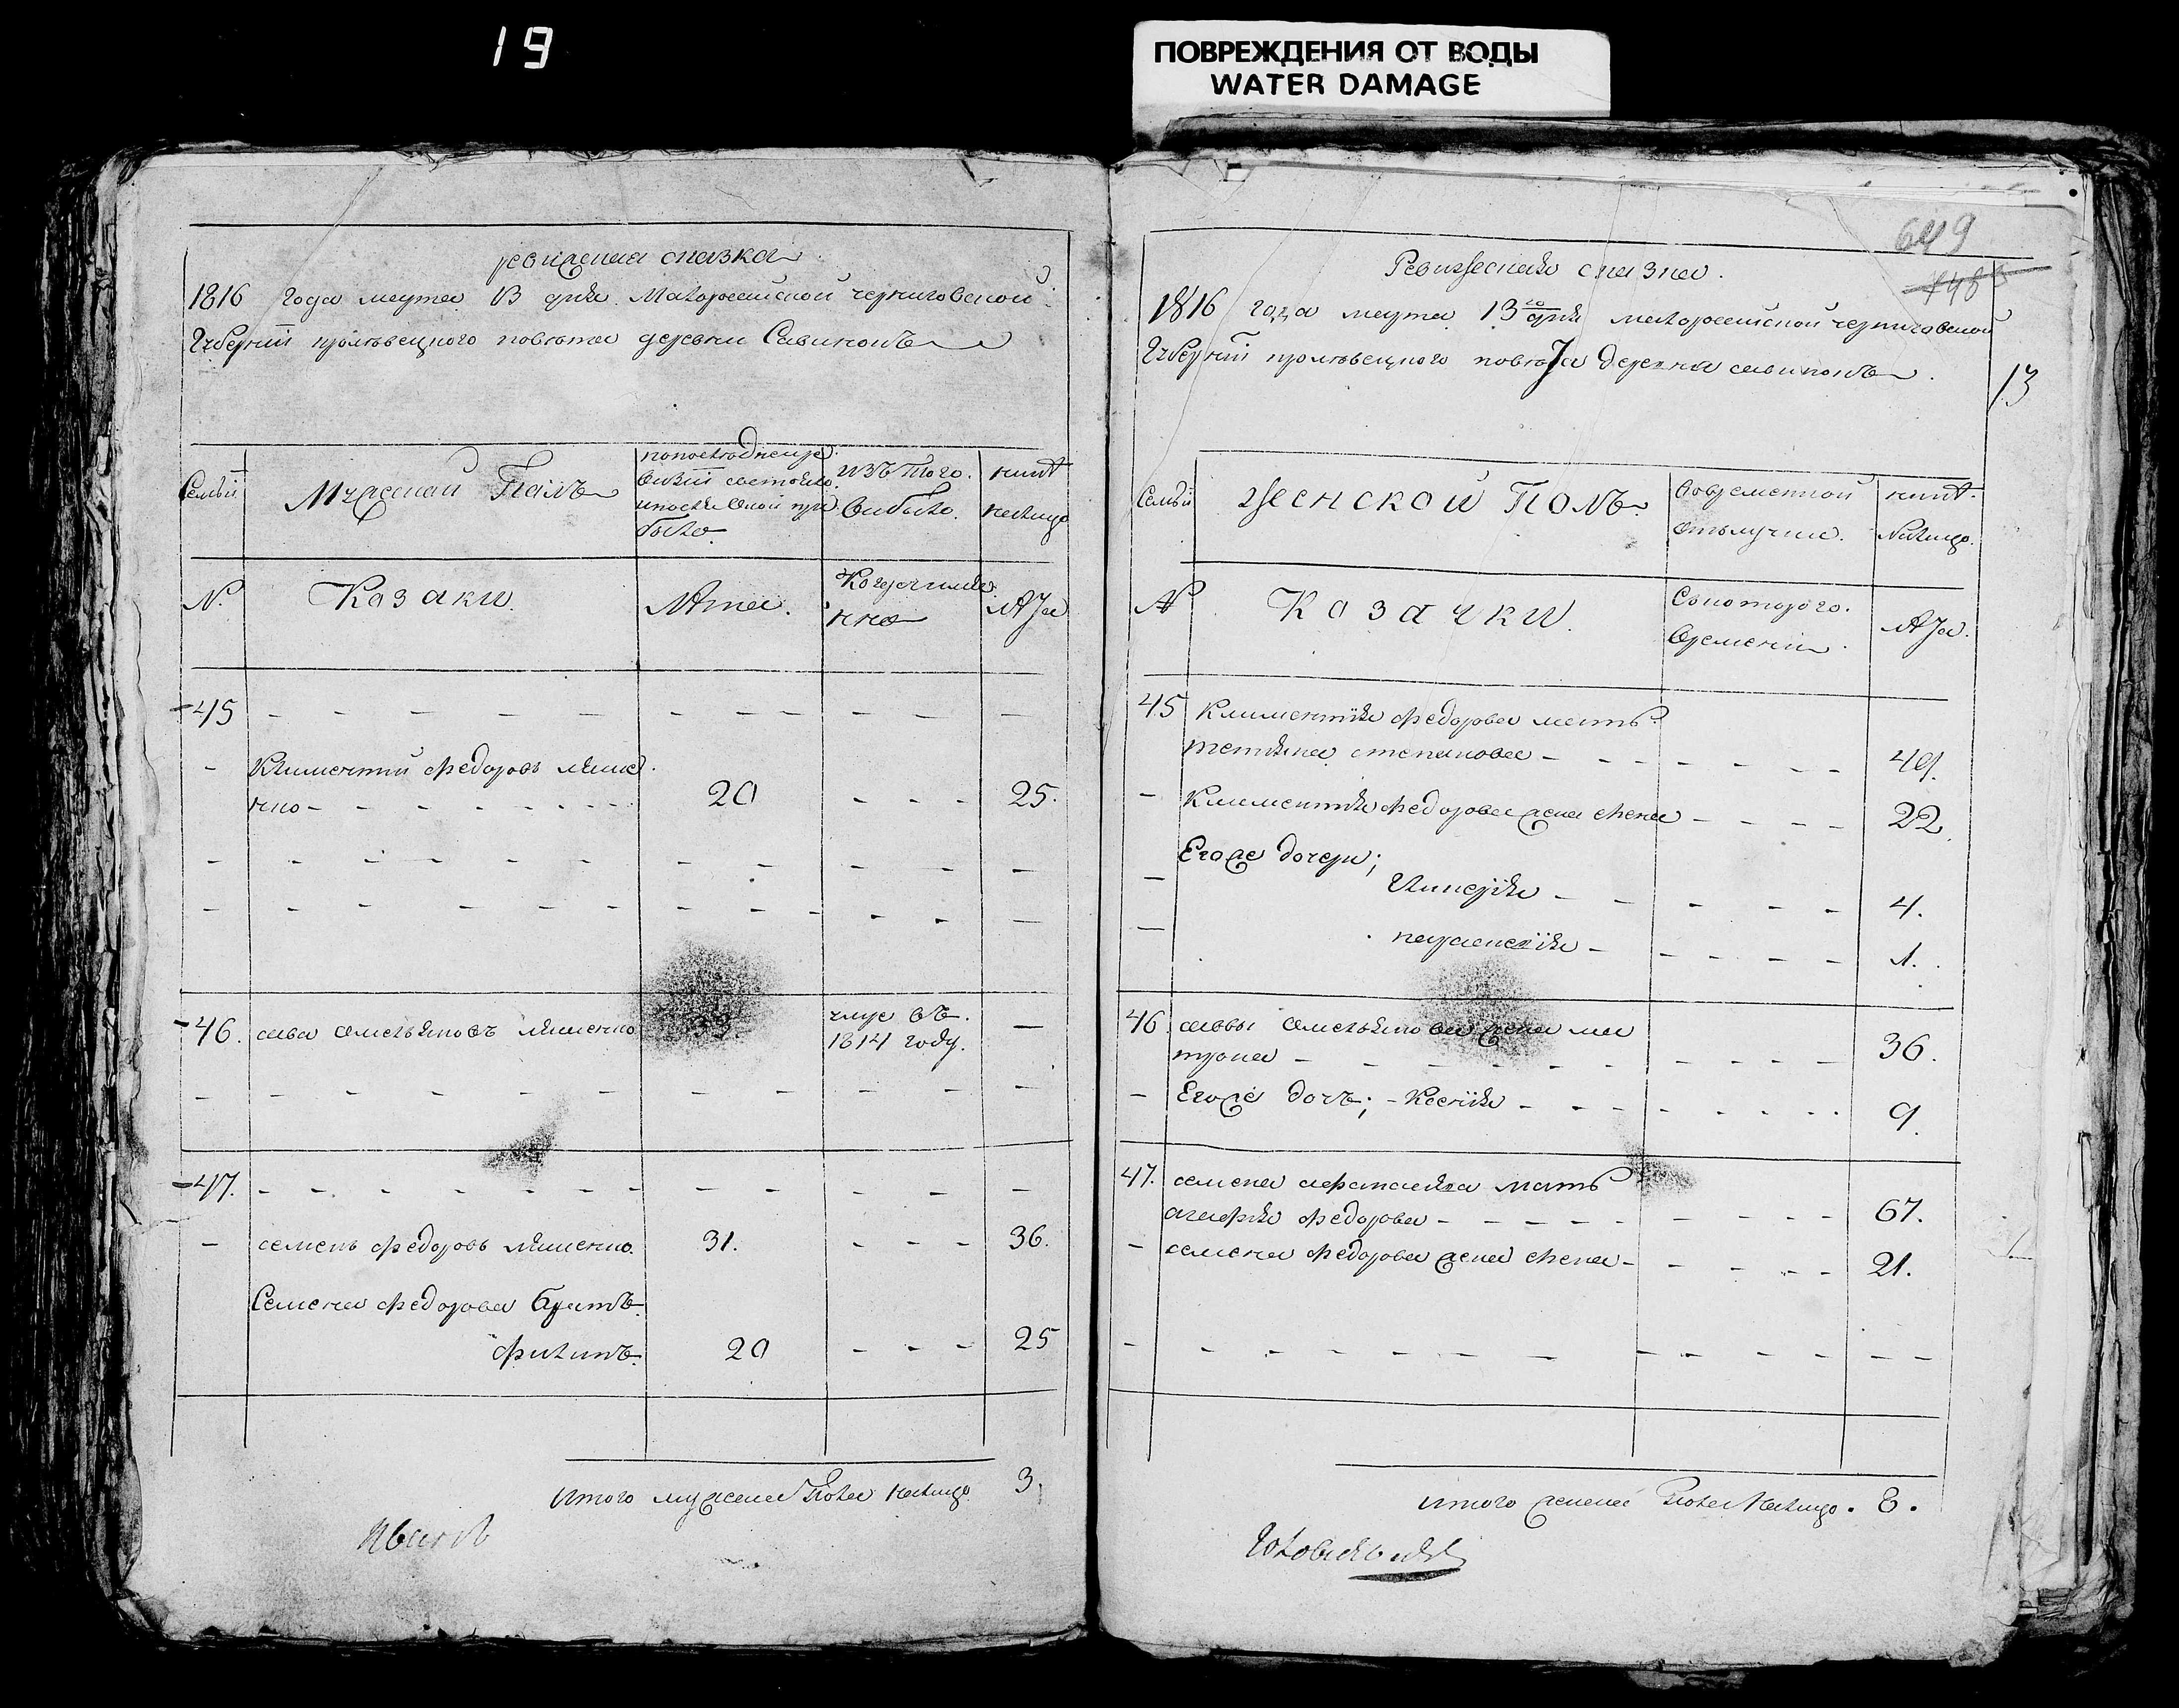 19
ПОВРЕЖДЕНИЯ ОТ ВОДЫ
WATER DAMAGE
ревизская сказка
1816 года марта 13 дня. Малоросийской черниговской
Губернїи кролевецкого повета деревни Савинокъ
Семьи
Мужеской Полъ
попоследнейре
визїи состояло
ипосле оной при
было.
изъ того.
выбыло.
нынѣ
налицо
№.
Козаки.
Лѣта.
Когда имян
нно
лѣта
45
Климентий федоровъ
20
25.
46. сава омельяновъ
33.
умре въ
1814 году.
47.
семенъ федоровъ
31.
36.
Семена федорова братъ
филипъ
20
25
Итого мужеска пола налицо
3.
Иванъ
649
Ревизская сказка.
1816 года марта 13го дня малоросийской черниговской
Губернїи кролевецкого повета деревни савинокъ
13
Семьи
Женской Полъ
вовременной
отълучки.
нынѣ
налицо.
№
Козачки.
Скоторого
времени
лѣта.
45 Климентия федорова мать
татияна степанова
49.
Климентия федорова жена елена
22.
Егоже дочери;
4.
параскевїя
1.
46. саввы омельянова жена ма
трона
36.
Егоже дочъ; Ксенїя
9.
47. семена мать
агафия федорова
67.
семена федорова жена елена
21.
итого женска пола налицо. 8.